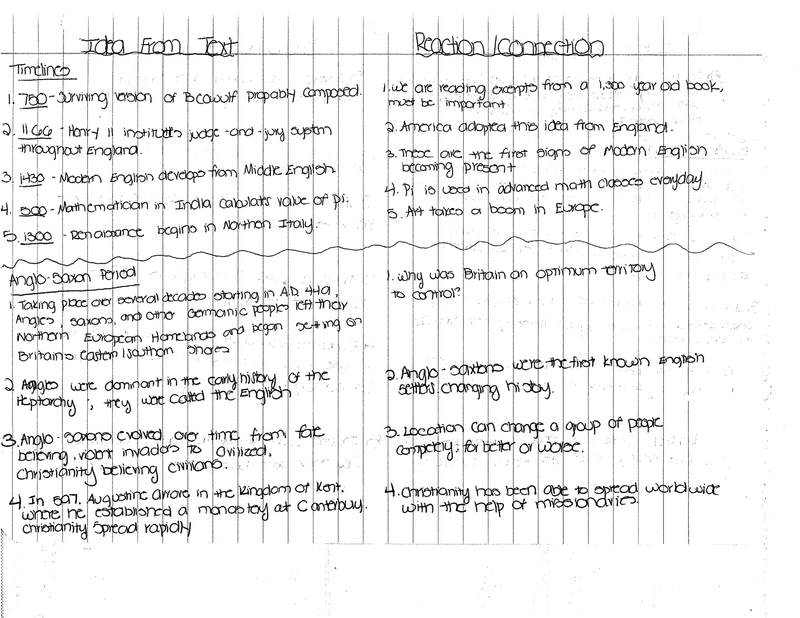 Idea From Text
Timelines
1. 780 - Surviving version of Beowulf propably composed.
2. 1166 - Henry II institutes judge-and-jury system
throughout England.
3. 1430 - Modern English develops from Middle English
4. 500 - Mathematician in India calculates value of pi.
5. 1300 - Renaissance begins in Northern Italy.
Anglo-Saxon Period
1. Taking place over several decades starting in A.D. 449,
Angles, Saxons, and other Germanic peoples left their
Northern European Homelands and began settling on
Britains Eastern/Southern shores
2. Angles were dominant in the early history of the
Heptarchy; they were called the English
3. Anglo-Saxons evolved over time from fate
believing, violent invaders to civilized,
Christianity believing civilians.
4. In 597, Augustine arrove in the Kingdom of Kent.
where he established a monastary at Canterbury.
Christianity spread rapidly
Reaction/Connection
1. we are reading excerpts from a 1,300 year old book,
must be important
2. America adopted this idea from England.
3. These are the first signs of Modern English
becoming present
4. Pi is used in advanced math classes everyday.
5. Art takes a boom in Europe.
1. Why was Britain an optimum territory
to control?
2. Anglo-Saxtons were the first known English
settlers, changing history.
3. Location can change a group of people
completly; for better or worse.
4. Christianity has been able to spread worldwide
with the help of missionaries.